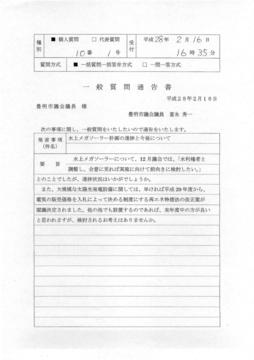 種別 ■ 個人質問 □ 代表質問 受付 平成28年2月16日
10番 1号 16時35分
質問方式 ■ 一括質問一括答弁方式 □ 一問一答方式
一般質問通告書
平成28年2月16日
豊明市議会議長 様
豊明市議会議員 富永 秀一
次の事項に関し、一般質問をいたしたいので通告をいたします。
発言事項(件名) 水上メガソーラー計画の進捗と今後について
要旨 水上メガソーラーについて、12月議会では、「水利権者と
調整し、合意に至れば実施に向けて前向きに検討したい」
とのことでしたが、進捗状況はいかがでしょうか。
また、大規模な太陽光発電設備に関しては、早ければ平成29年度から、
電気の販売価格を入札によって決める制度にする再エネ特措法の改正案が
閣議決定されました。他の池でも設置するのであれば、来年度中の方が良い
と思われますが、検討されるお考えはありませんか。